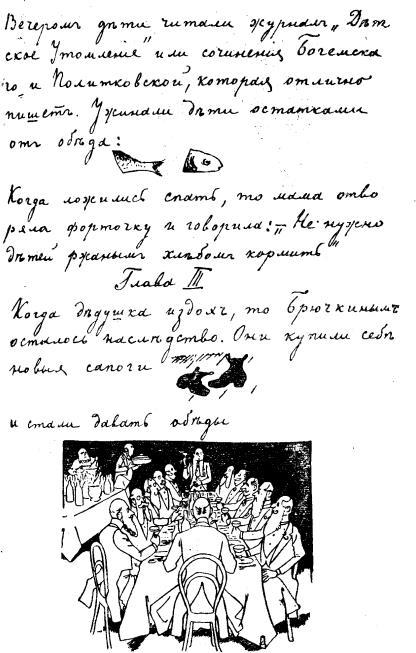 Вечеромъ дѣти читали журналъ „Дѣт
ское Утомленіе" или сочиненія Богемска
го и Политковской, которая отлично
пишетъ. Ужинали дѣти остатками
отъ обѣда:
Когда ложились спать, то мама отво
ряла форточку и говорила: — „Не нужно
дѣтей ржанымъ хлѣбомъ кормить"
Глава III
Когда дѣдушка издохъ, то Брючкинымъ
осталось наслѣдство. Они купили себѣ
новыя сапоги
и стали давать обѣды